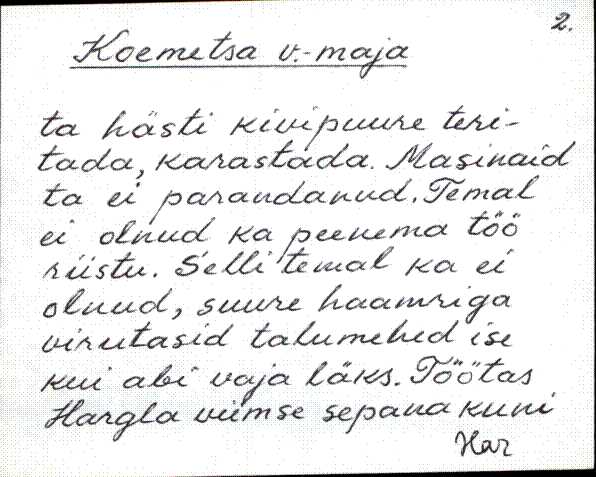 2.
Koemetsa v.-maja
ta hästi kivipuure teri-
tada, karastada. Masinaid
ta ei parandanud. Temal
ei olnud ka peenema töö
riistu. Selli temal ka ei
olnud, suure haamriga
virutasid talumehed ise
kui abi vaja läks. Töötas
Hargla viimse sepana kuni
Har